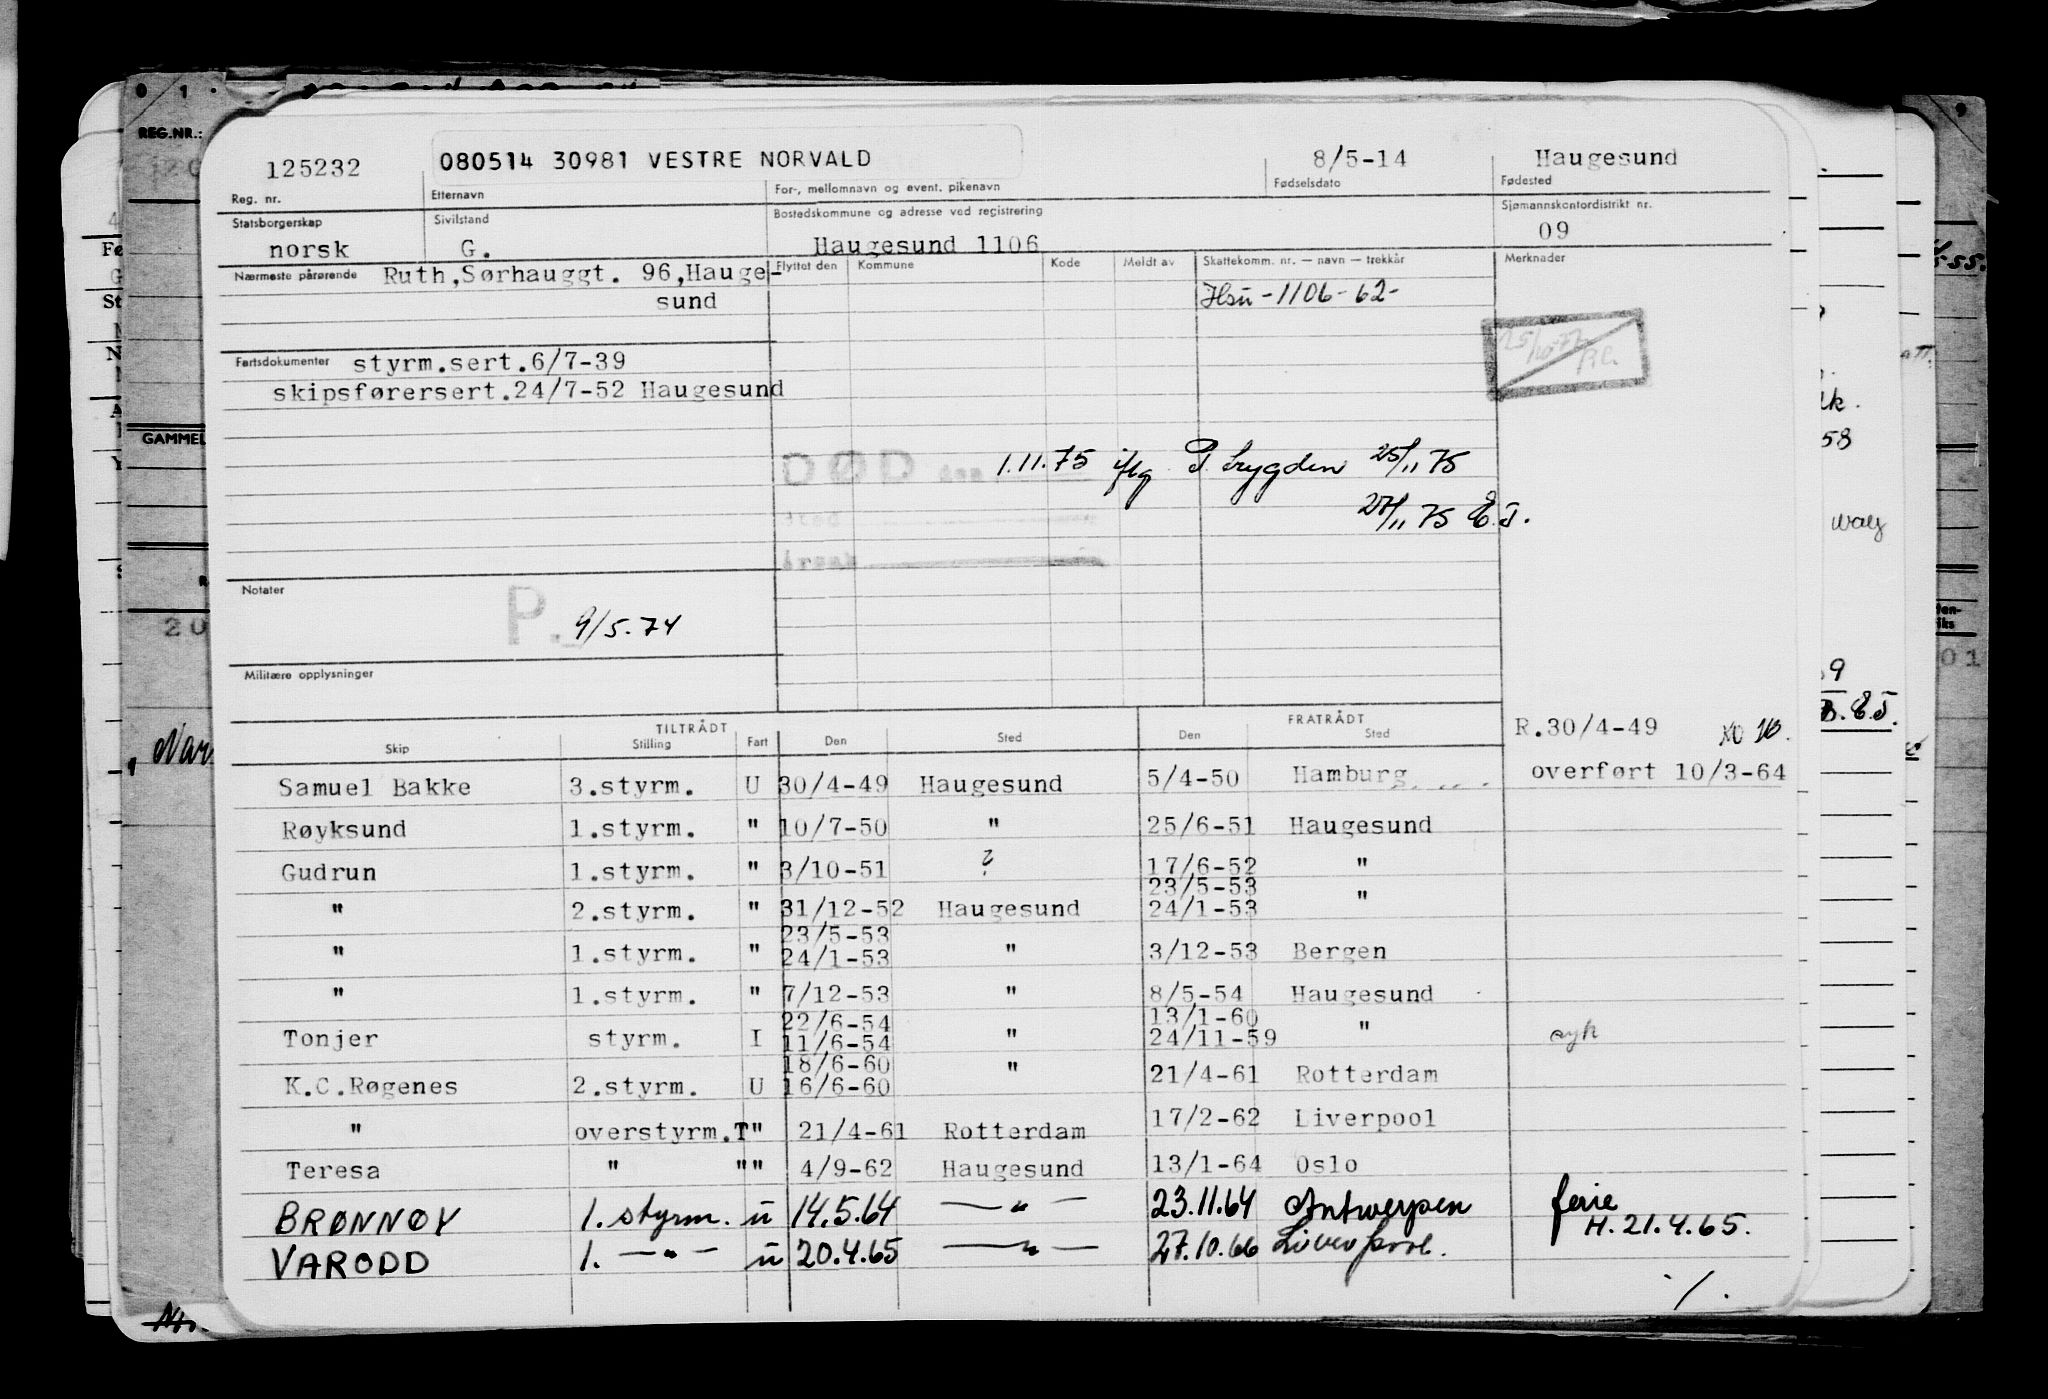 125232 080514 30981 VESTRE NORVALD 8/5-14 Haugesund
Reg. nr. Etternavn For-, mellomnavn og event. pikenavn Fødselsdato Fødested
Statsborgerskap Sivilstand Bostedskommune og adresse ved registrering Sjømannskontordistrikt nr.
norsk G. Haugesund 1106 09
Nærmeste pårørende Ruth,Sørhauggt. 96,Hauge-
sund
Flyttet den Kommune Kode Meldt av Skattekomm. nr. — navn — trekkår Merknader
Hsu -1106-62-
Fartsdokumenter styrm.sert.6/7-39
skipsførersert.24/7-52 Haugesund
DØD den 1.11.75 iflg P. trygden 25/11 75
Sted 27/11 75 E.J.
Årsak
Notater
P. 9/5.74
Militære opplysninger
TILTRÅDT FRATRÅDT
Skip Stilling Fart Den Sted Den Sted
R.30/4-49
Samuel Bakke 3.styrm. U 30/4-49 Haugesund 5/4-50 Hamburg overført 10/3-64
Røyksund 1.styrm. " 10/7-50 " 25/6-51 Haugesund
Gudrun 1.styrm. " 3/10-51 ? 17/6-52 "
23/5-53
" 2.styrm. " 31/12-52 Haugesund 24/1-53 "
23/5-53
" 1.styrm. " 24/1-53 " 3/12-53 Bergen
" 1.styrm. " 7/12-53 " 8/5-54 Haugesund
22/6-54 13/1-60
Tonjer styrm. I 11/6-54 " 24/11-59 " syk
18/6-60
K.C.Røgenes 2.styrm. U 16/6-60 " 21/4-61 Rotterdam
" overstyrm.T" 21/4-61 Rotterdam 17/2-62 Liverpool
Teresa " "" 4/9-62 Haugesund 13/1-64 Oslo
BRØNNØY 1. styrm. u 14.5.64 —"— 23.11.64 Antwerpen ferie
H. 21.4.65.
VARODD 1. —"— u 20.4.65 —"— 27.10.66 Liverpool.
REG.NR.:
GAMMEL